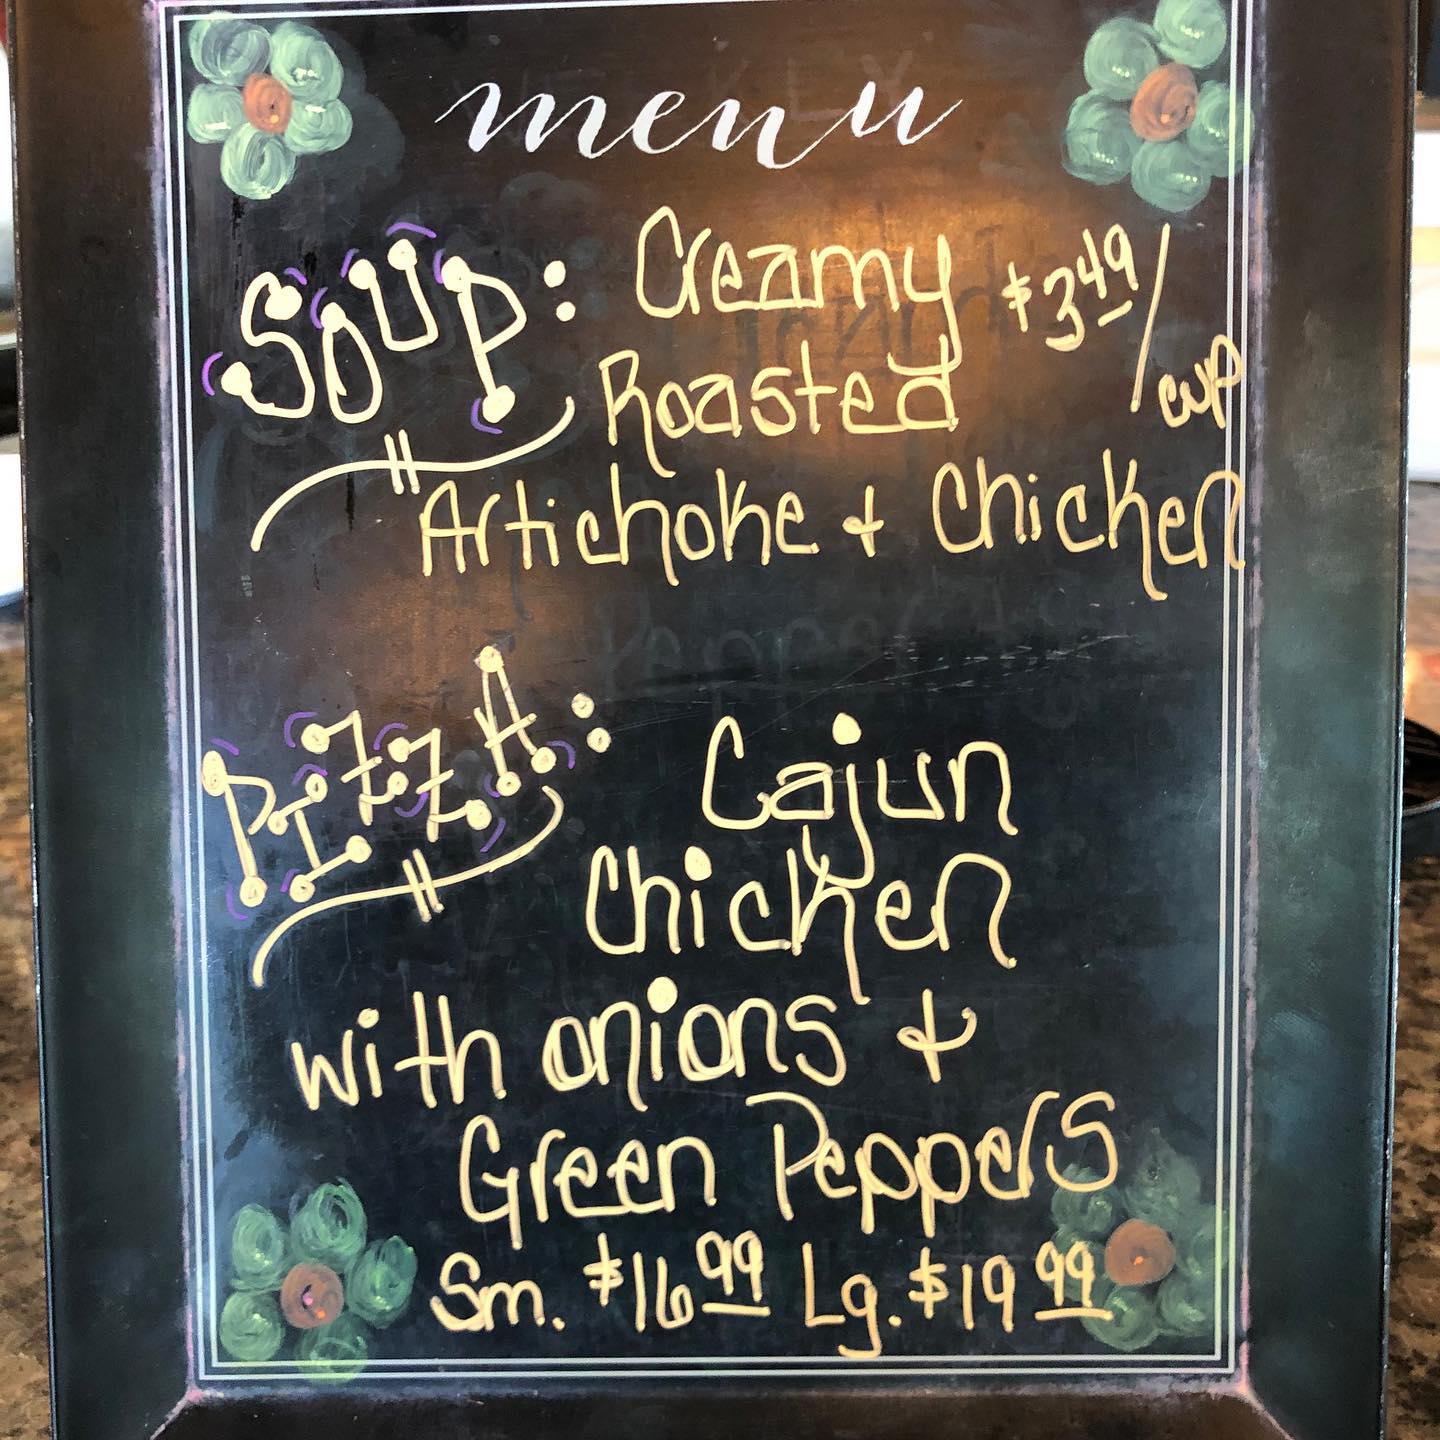 menu
Soup: Creamy $3.49/cup
Roasted
Artichoke & Chicken
PIZZA: Cajun
Chicken
with onions &
Green Peppers
Sm. $16.99 Lg. $19.99